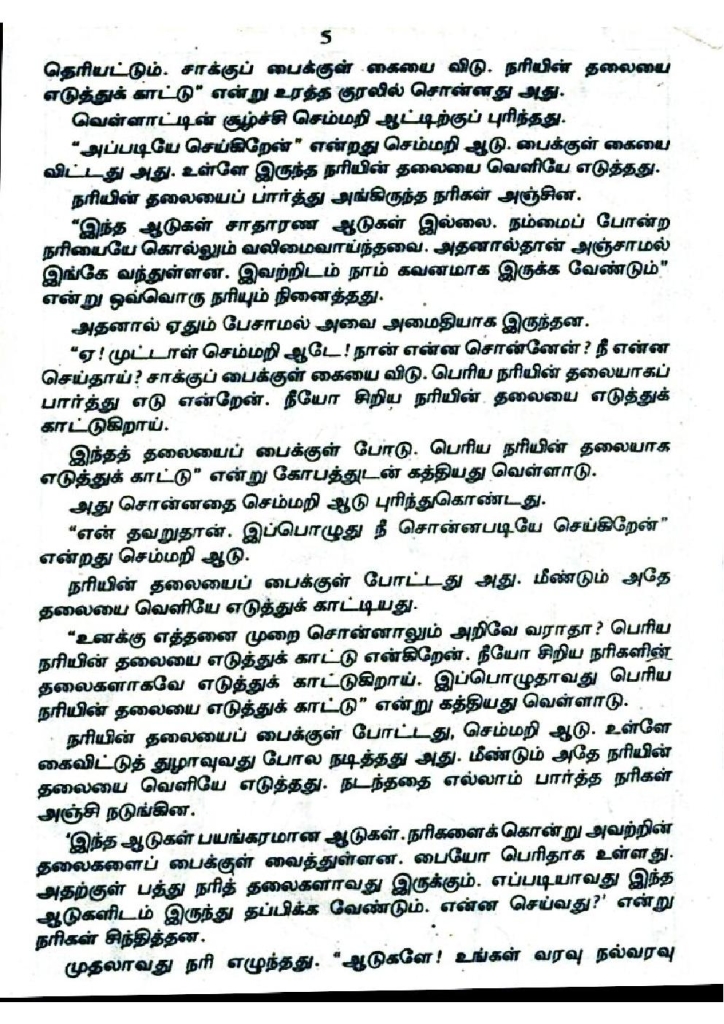 5
தெரியட்டும். சாக்குப் பைக்குள் கையை விடு. நரியின் தலையை
எடுத்துக் காட்டு” என்று உரத்த குரலில் சொன்னது அது.
வெள்ளாட்டின் சூழ்ச்சி செம்மறி ஆட்டிற்குப் புரிந்தது.
“அப்படியே செய்கிறேன்” என்றது செம்மறி ஆடு. பைக்குள் கையை
விட்டது அது. உள்ளே இருந்த நரியின் தலையை வெளியே எடுத்தது.
நரியின் தலையைப் பார்த்து அங்கிருந்த நரிகள் அஞ்சின.
“இந்த ஆடுகள் சாதாரண ஆடுகள் இல்லை. நம்மைப் போன்ற
நரியையே கொல்லும் வலிமைவாய்ந்தவை. அதனால்தான் அஞ்சாமல்
இங்கே வந்துள்ளன. இவற்றிடம் நாம் கவனமாக இருக்க வேண்டும்”
என்று ஒவ்வொரு நரியும் நினைத்தது.
அதனால் ஏதும் பேசாமல் அவை அமைதியாக இருந்தன.
“ஏ! முட்டாள் செம்மறி ஆடே! நான் என்ன சொன்னேன்? நீ என்ன
செய்தாய்? சாக்குப் பைக்குள் கையை விடு. பெரிய நரியின் தலையாகப்
பார்த்து எடு என்றேன். நீயோ சிறிய நரியின் தலையை எடுத்துக்
காட்டுகிறாய்.
இந்தத் தலையைப் பைக்குள் போடு. பெரிய நரியின் தலையாக
எடுத்துக் காட்டு” என்று கோபத்துடன் கத்தியது வெள்ளாடு.
அது சொன்னதை செம்மறி ஆடு புரிந்துகொண்டது.
“என் தவறுதான். இப்பொழுது நீ சொன்னபடியே செய்கிறேன்”
என்றது செம்மறி ஆடு.
நரியின் தலையைப் பைக்குள் போட்டது அது. மீண்டும் அதே
தலையை வெளியே எடுத்துக் காட்டியது.
“உனக்கு எத்தனை முறை சொன்னாலும் அறிவே வராதா? பெரிய
நரியின் தலையை எடுத்துக் காட்டு என்கிறேன். நீயோ சிறிய நரிகளின்
தலைகளாகவே எடுத்துக் காட்டுகிறாய். இப்பொழுதாவது பெரிய
நரியின் தலையை எடுத்துக் காட்டு” என்று கத்தியது வெள்ளாடு.
நரியின் தலையைப் பைக்குள் போட்டது, செம்மறி ஆடு. உள்ளே
கைவிட்டுத் துழாவுவது போல நடித்தது அது. மீண்டும் அதே நரியின்
தலையை வெளியே எடுத்தது. நடந்ததை எல்லாம் பார்த்த நரிகள்
அஞ்சி நடுங்கின.
'இந்த ஆடுகள் பயங்கரமான ஆடுகள். நரிகளைக் கொன்று அவற்றின்
தலைகளைப் பைக்குள் வைத்துள்ளன. பையோ பெரிதாக உள்ளது.
அதற்குள் பத்து நரித் தலைகளாவது இருக்கும். எப்படியாவது இந்த
ஆடுகளிடம் இருந்து தப்பிக்க வேண்டும். என்ன செய்வது?' என்று
நரிகள் சிந்தித்தன.
முதலாவது நரி எழுந்தது. “ஆடுகளே! உங்கள் வரவு நல்வரவு